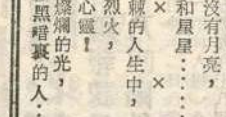 沒有月亮，
和星星……
×　×
棘的人生中，
烈火，
心靈！
燦爛的光，
黑暗裏的人…